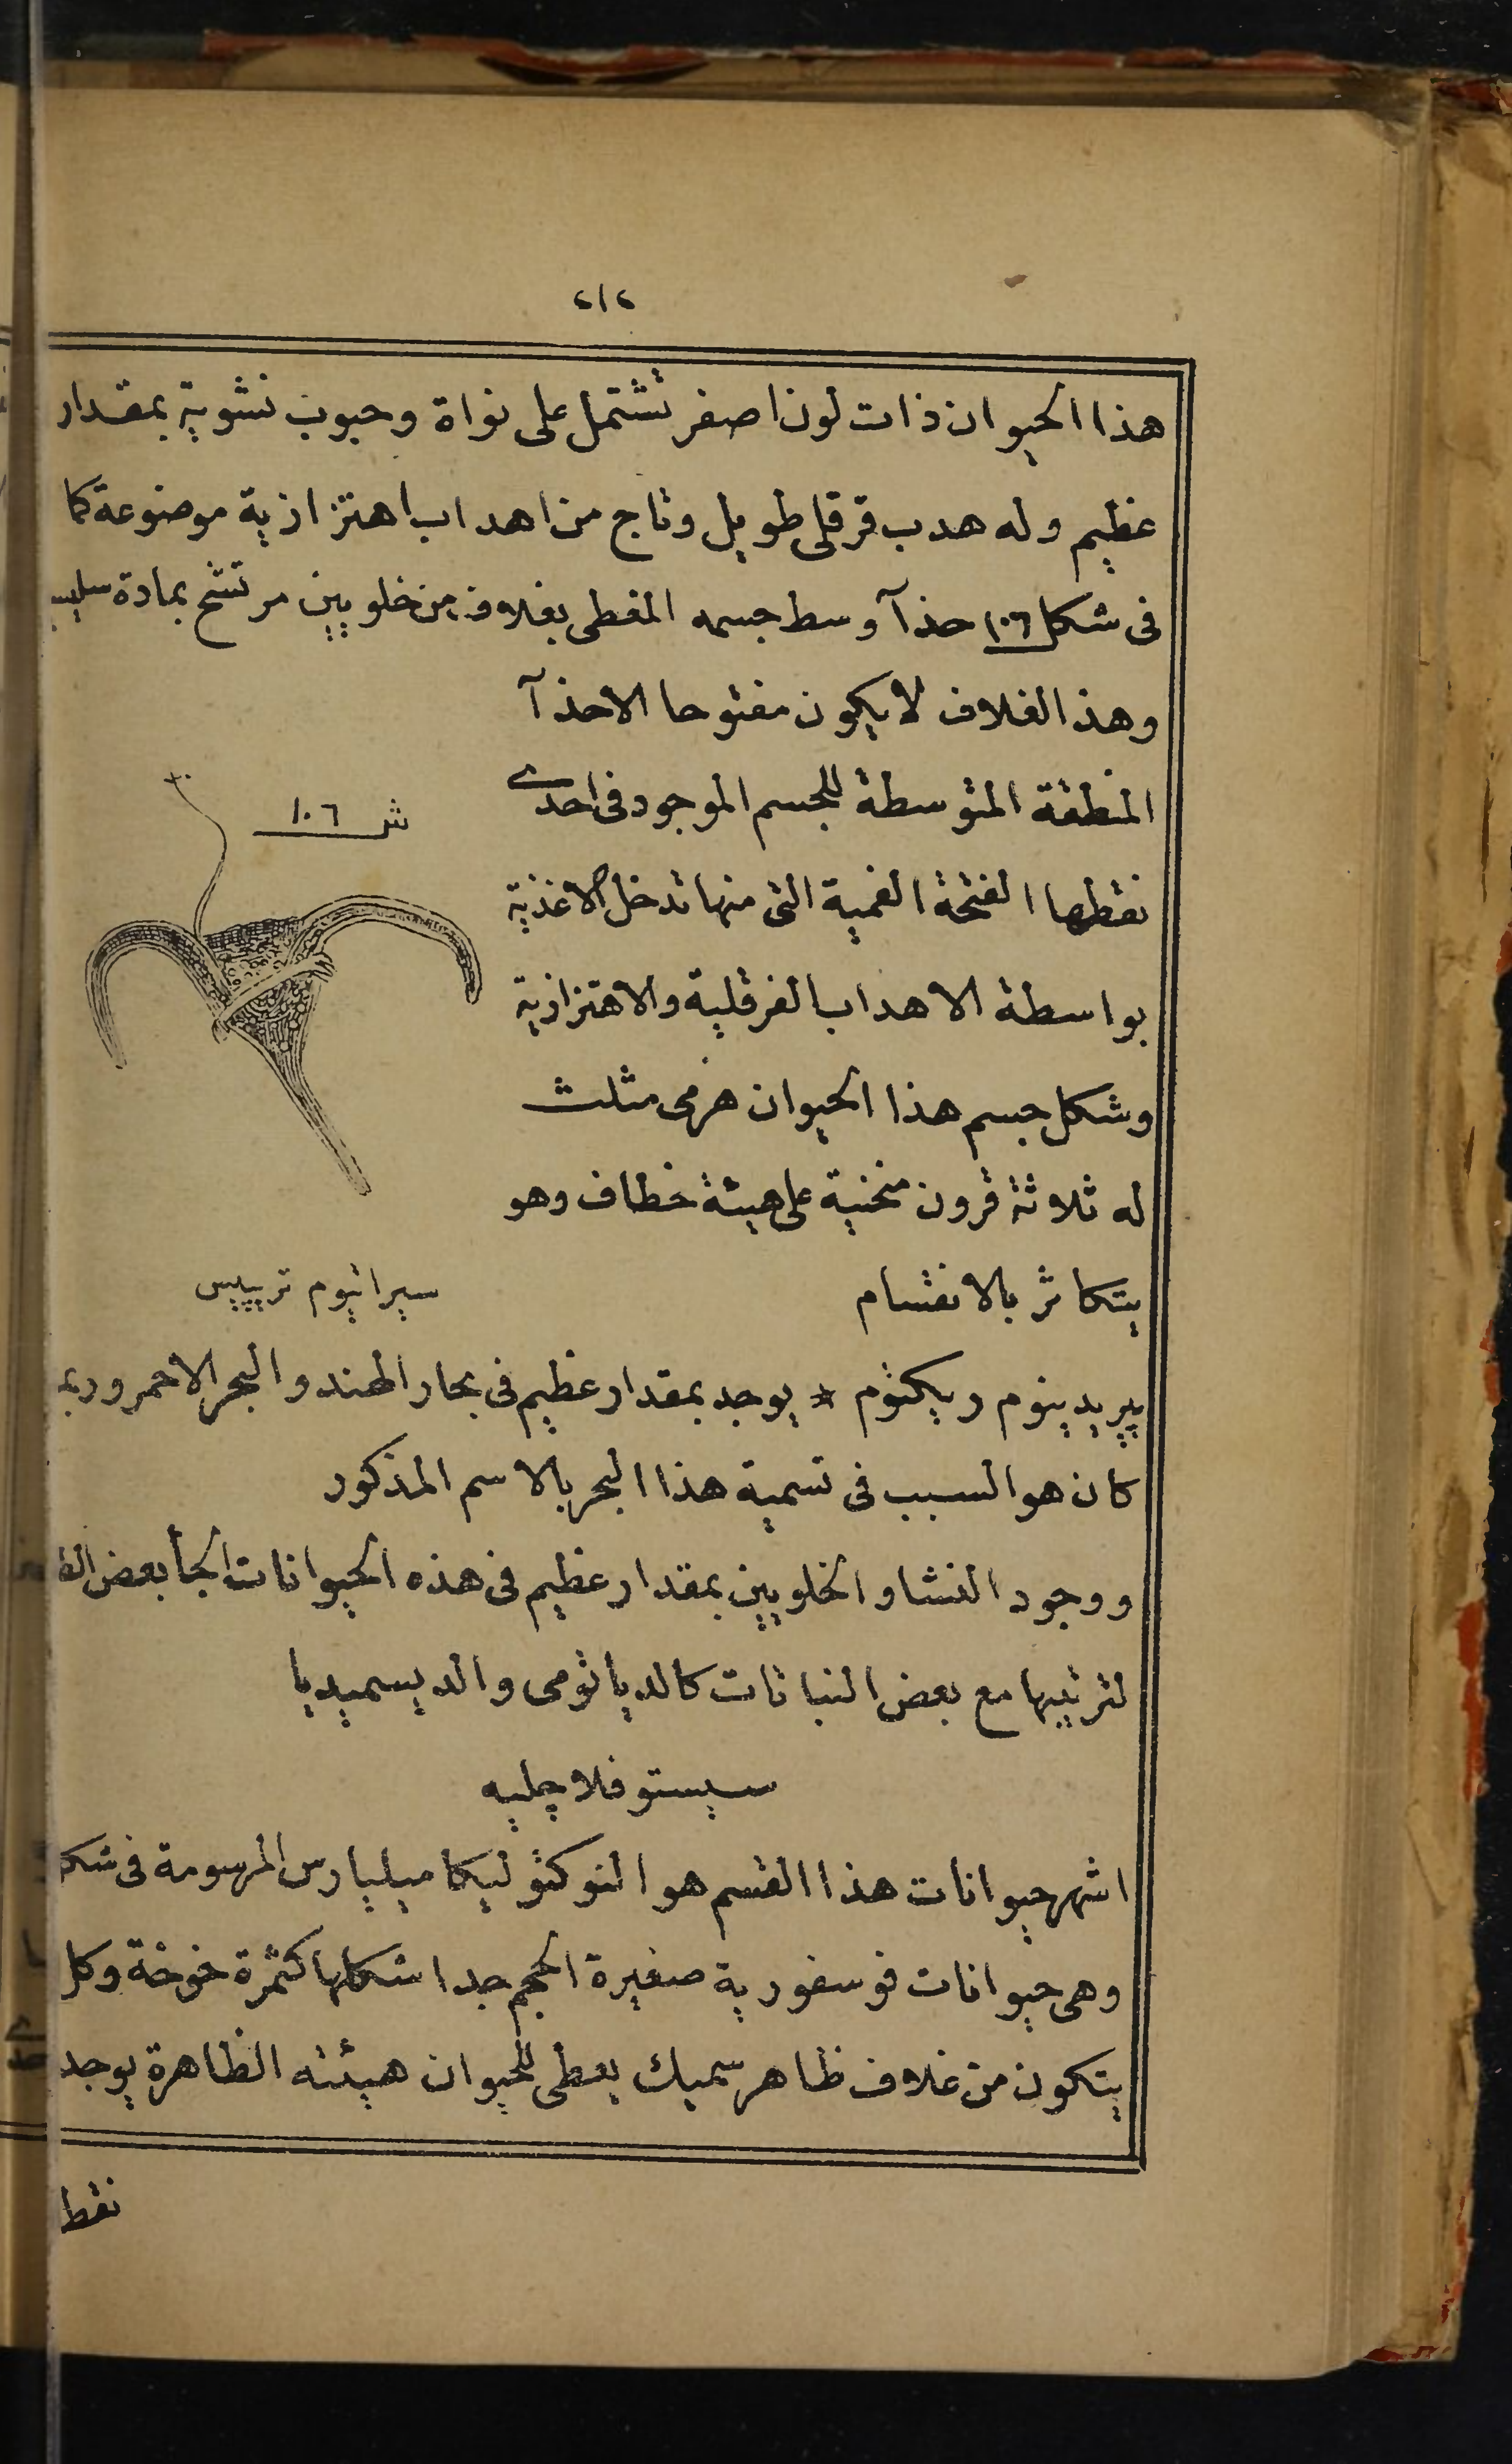 ٢١٢
هذا الحيوان ذات لون اصفر تشتمل على نواة وحبوب نشوية بمقدار
عظيم وله هدب قرقلى طويل وتاج من اهداب اهتزازية موضوعة كما
فى شكل ١٠٦ حذآ وسط جسمه المغطى بغلاف من خلويين مرتشح بمادة
وهذ الغلاف لا يكون مفتوحا الا حذآ
المنطقة المتوسطة للجسم الموجود فى احدى
نقطها الفتحة الفمية التى منها تدخل الاغذية
بواسطة الاهداب الفرقلية والاهتزازية
وشكل جسم هذا الحيوان هرمى مثلث
له ثلاثة قرون منحنية على هيئة خطاف وهو
يتكاثر بالانقسام
ش ١٠٦
سيراتيوم تريپيس
پيريدينوم ريكثوم * يوجد بمقدار عظيم فى بحار الهند والبحر الاحمر وربما
كان هو السبب فى تسمية هذا البحر بالاسم المذكور
ووجود النشا والخلويين بمقدار عظيم فى هذه الحيوانات الجأ بعض
لترتيبها مع بعض النباتات كالدياتومى والديسميديا
سيستوفلاچليه
اشهر حيوانات هذا القسم هو النوكتوليكا ميليارس المرسومة فى شكل
وهى حيوانات فوسفورية صغيرة الحجم جدا شكلها كثمرة خوخة وكل
يتكون من غلاف ظاهر سميك يعطى للحيوان هيئته الظاهرة يوجد
نقطا